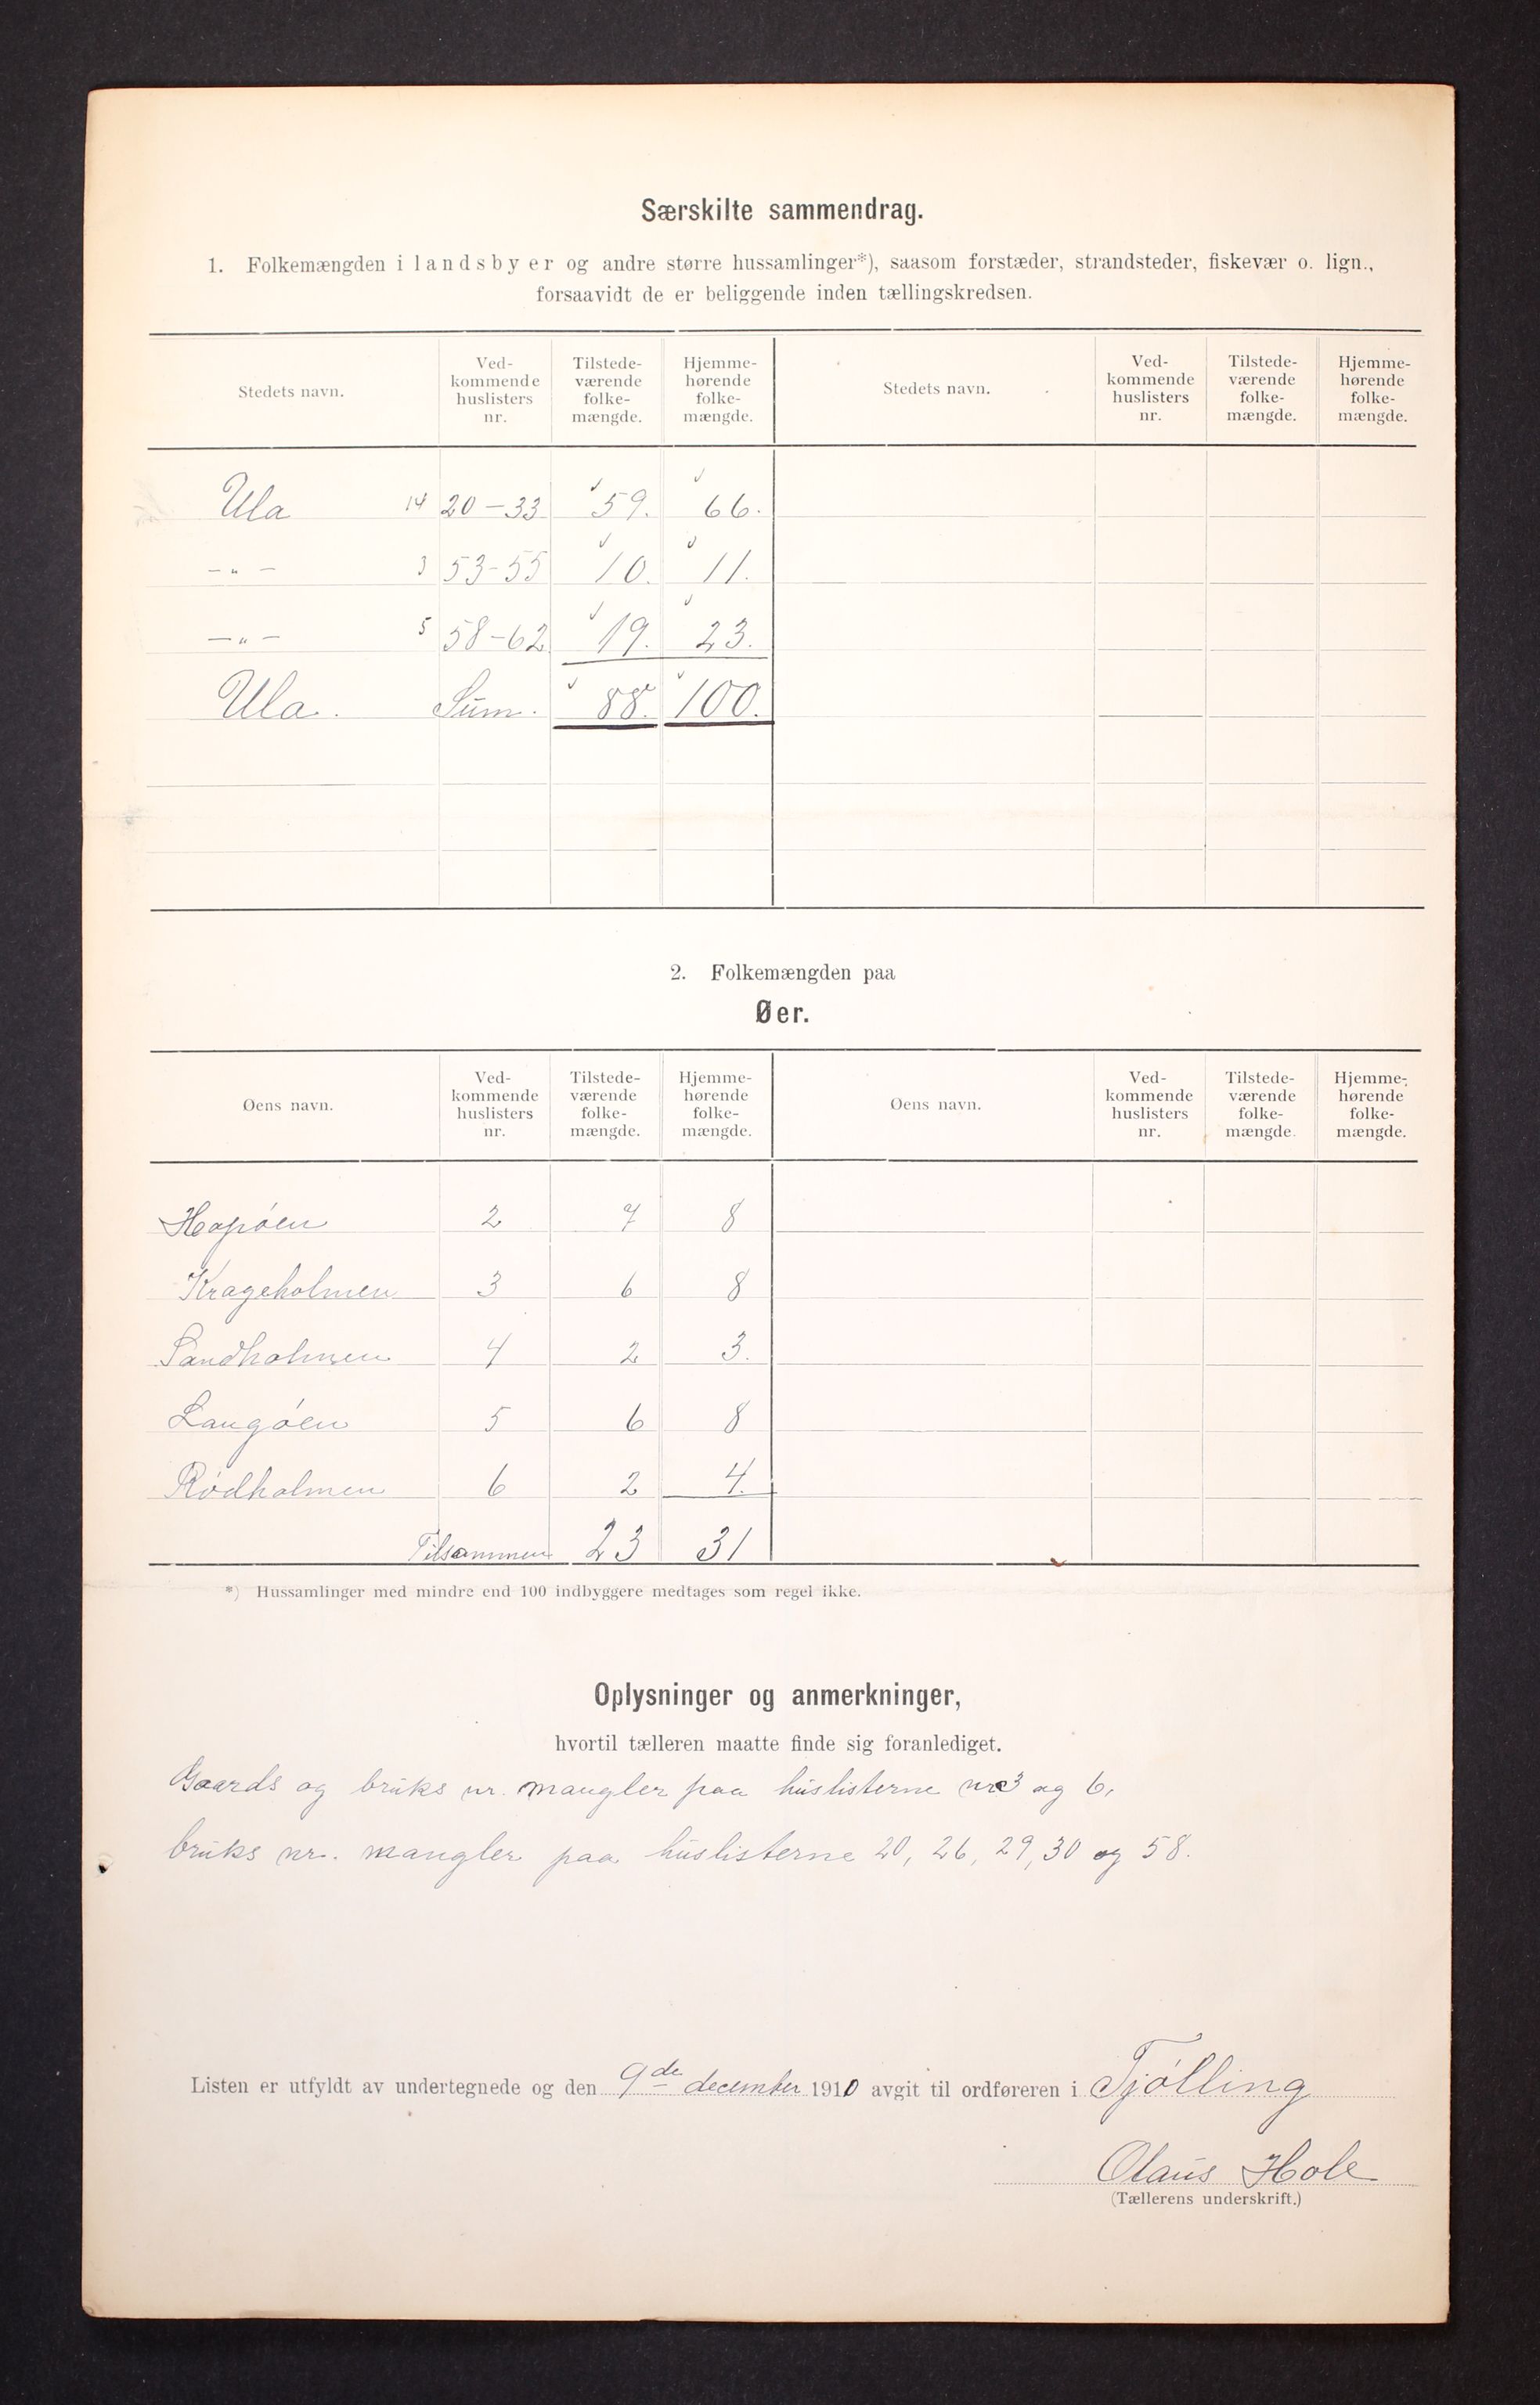 Særskilte sammendrag.
1. Folkemængden i landsbyer og andre større hussamlinger*), saasom forstæder, strandsteder, fiskevær o. lign.,
forsaavidt de er beliggende inden tællingskredsen.
Stedets navn. Ved-kommende huslisters nr. Tilstede-værende folke-mængde. Hjemme-hørende folke-mængde. Stedets navn. Ved-kommende huslisters nr. Tilstede-værende folke-mængde. Hjemme-hørende folke-mængde.
Ula 14 20-33 59. 66.
-„- 3 53-55 10. 11.
-„- 5 58-62 19. 23.
Ula. Sum. 88. 100.
2. Folkemængden paa
Øer.
Øens navn. Ved-kommende huslisters nr. Tilstede-værende folke-mængde. Hjemme-hørende folke-mængde. Øens navn. Ved-kommende huslisters nr. Tilstede-værende folke-mængde. Hjemme-hørende folke-mængde.
2 7 8
Krageholmen 3 6 8
Sandholmen 4 2 3.
Langøen 5 6 8
Rødholmen 6 2 4.
Tilsammen 23 31
*) Hussamlinger med mindre end 100 indbyggere medtages som regel ikke.
Oplysninger og anmerkninger,
hvortil tælleren maatte finde sig foranlediget.
Gaards og bruks nr. mangler paa huslisterne nr 3 og 6,
bruks nr. mangler paa huslisterne 20, 26, 29, 30 og 58.
Listen er utfyldt av undertegnede og den 9de december 1910 avgit til ordføreren i Tjølling
Olaus Hole
(Tællerens underskrift.)